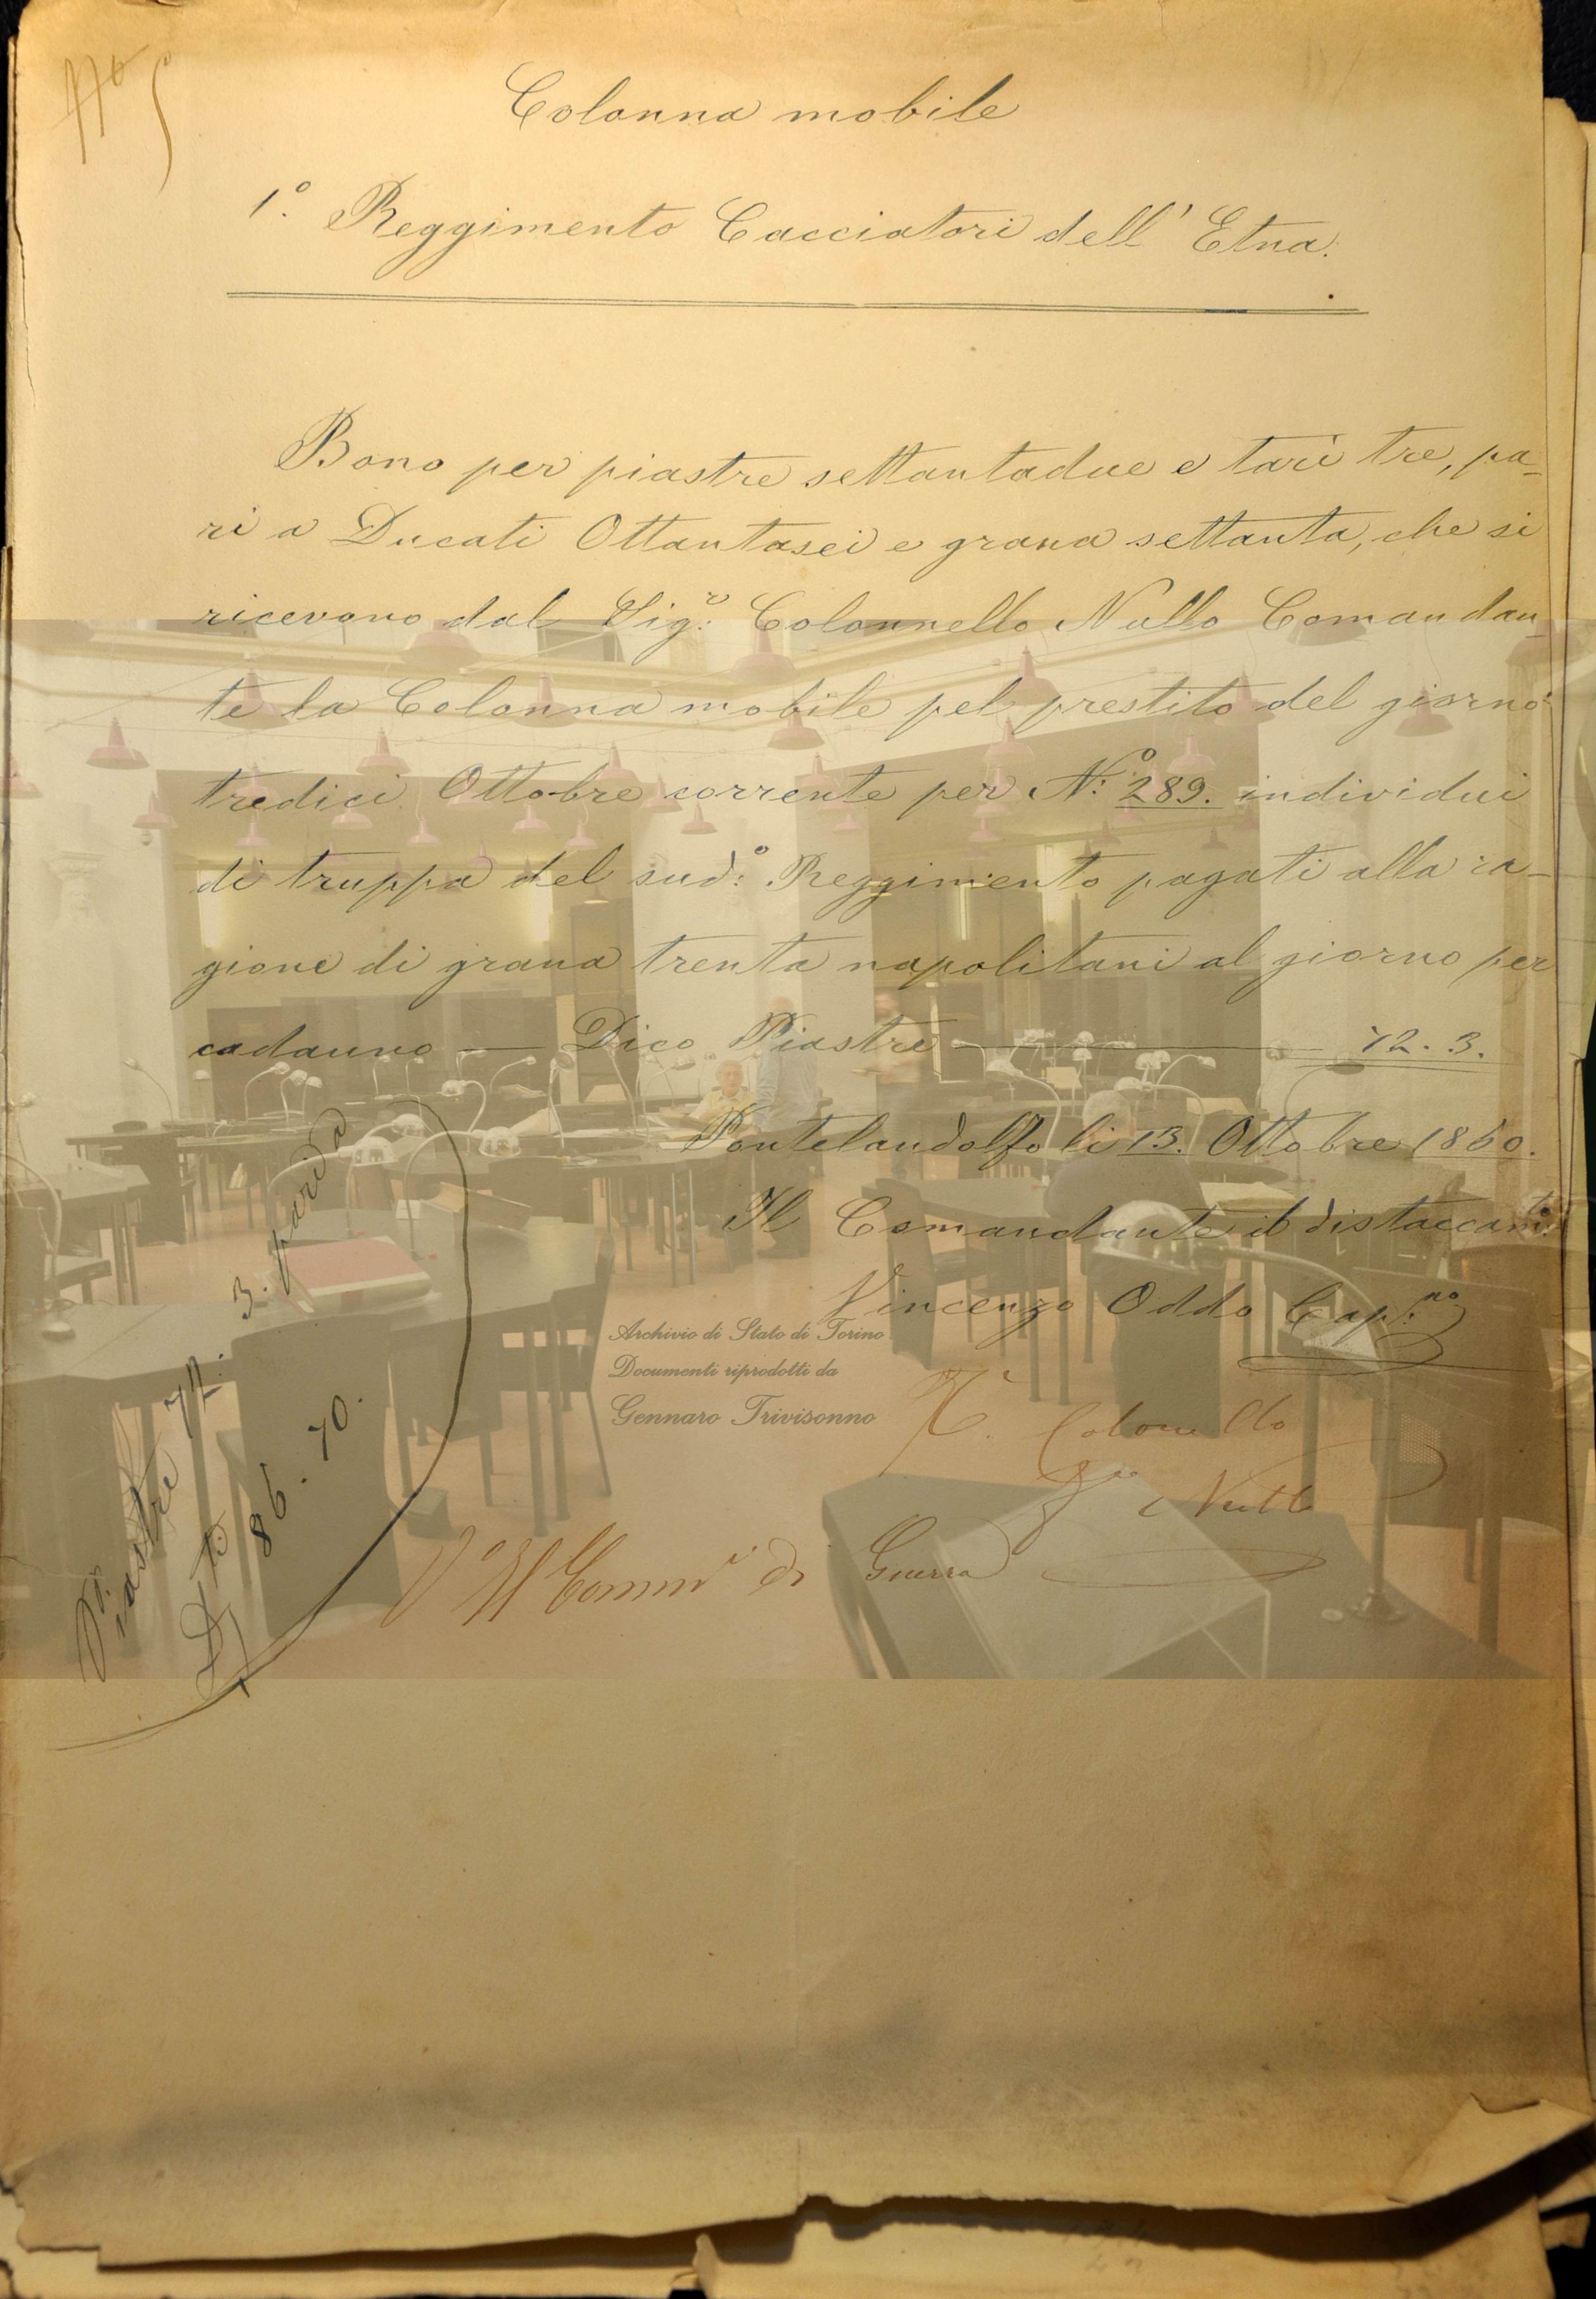 5
Colonna mobile
1.o Reggimento Cacciatori dell' Etna.
Bono per piastre settantadue e tarì tre, pa-
ri a Ducati Ottantasei e grana settanta, che si
ricevono dal Sig.r Colonnello Nullo Comandan-
te la Colonna mobile pel prestito del giorno
tredici Ottobre corrente per N.o 289. individui
di truppa del sud.o Reggimento pagati alla ra-
gione di grana trenta napolitani al giorno per
cadauno — Dico Piastre — 72. 3.
Pontelandolfo li 13. Ottobre 1860.
Il Comandante il distaccam.to
Vincenzo Oddo Cap.no
Colonello
Nullo
V.o Il Comm.r di Guerra
Piastre 72. 3.
86. 70.
Archivio di Stato di Torino
Documenti riprodotti da
Gennaro Trivisonno